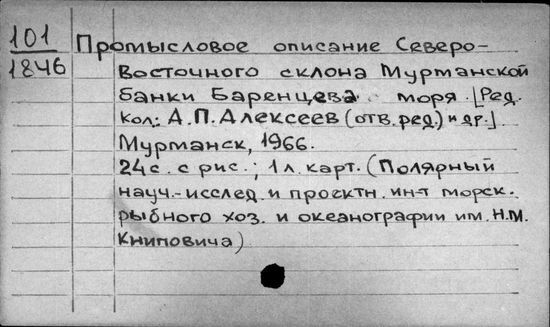 101 Промысловое описание Северо-
1846 Восточного склона Мурманской
банки Баренцева моря. [Ред.
кол.: А.П. Алексеев (отв. ред.) и др.].
Мурманск, 1966.
24 с. с рис.; 1 л. карт. (Полярный
науч.-исслед. и проектн. ин-т морск.
рыбного хоз. и океанографии им. Н.М.
Книповича)